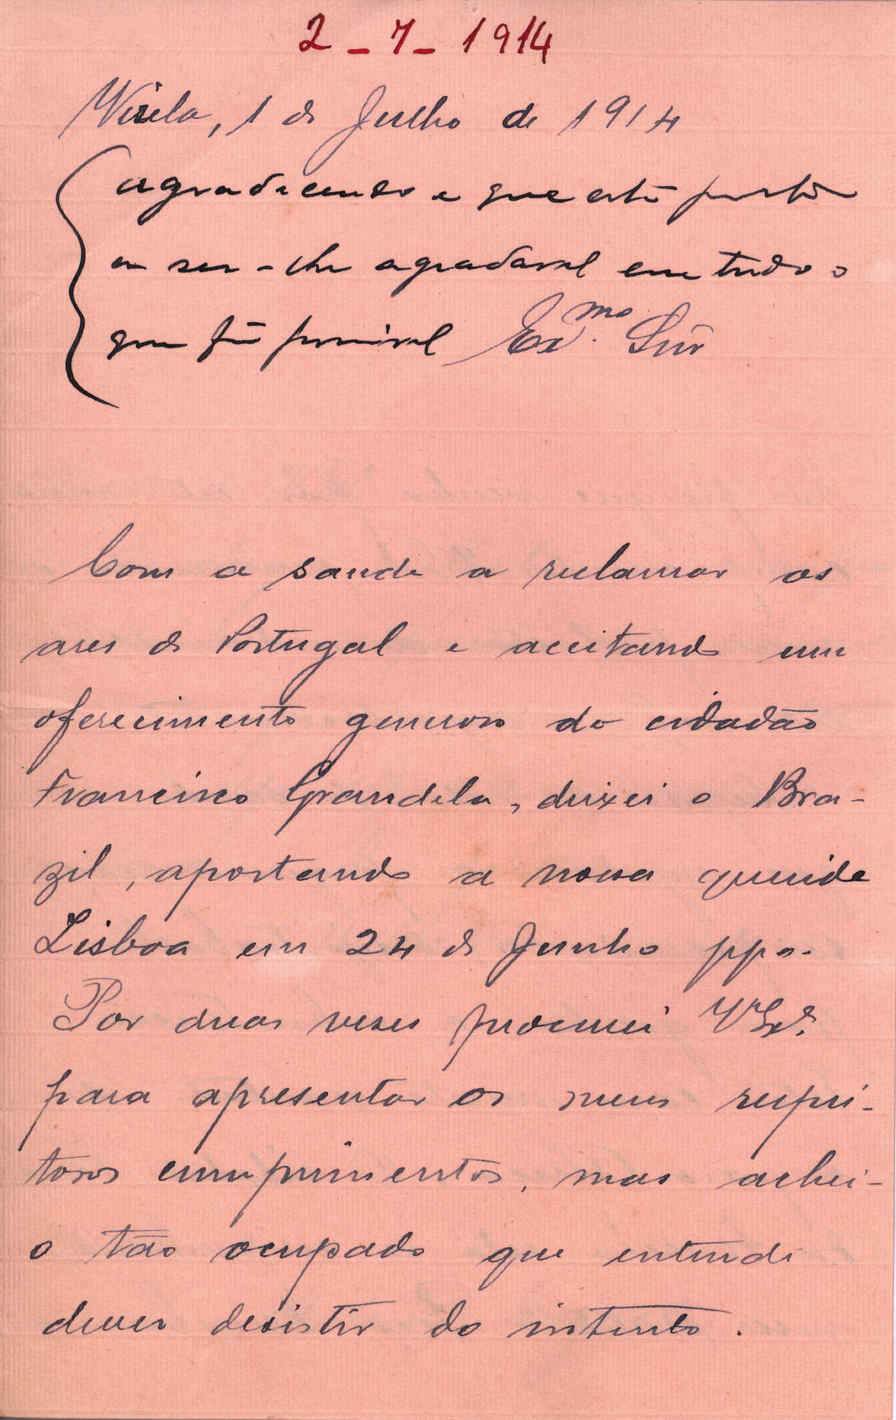 2-7-1914
Visela, 1 de Julho de 1914
agradecendo e que está prompto
a ser-lhe agradavel em tudo o
que fôr possivel Exmo. Snr
Com a saude a reclamar os
ares de Portugal e aceitando um
oferecimento generoso do cidadão
Francisco Grandela, deixei o Bra-
zil, aportando a nossa querida
Lisboa em 24 de Junho ppo.
Por duas vezes procurei V. Exª.
para apresentar os meus respei-
tosos cumprimentos, mas achei-
o tão ocupado que entendi
dever desistir do intento.